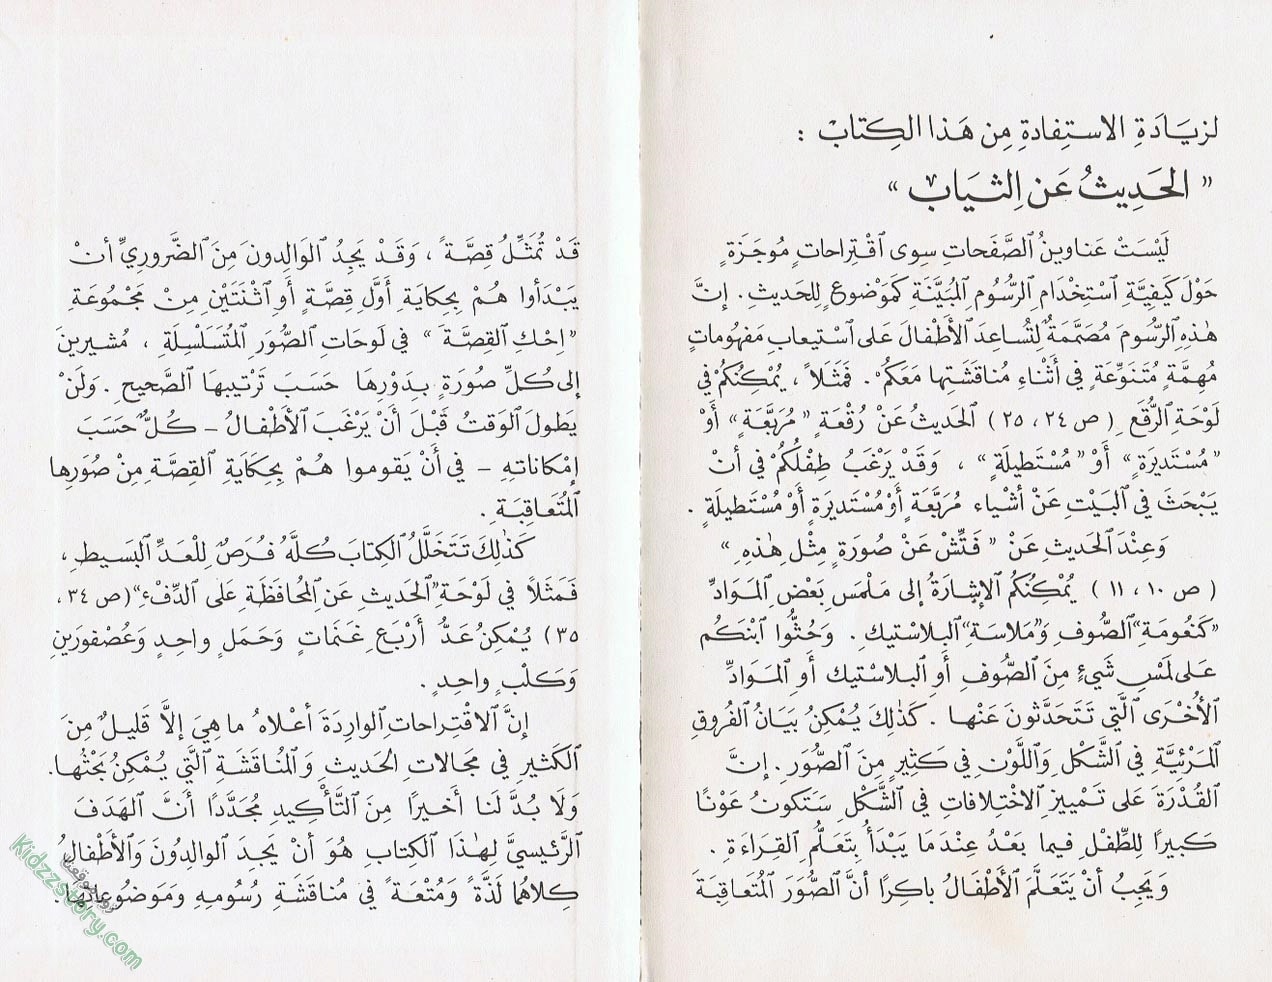 لِزِيَادَةِ الاستِفادَةِ مِن هَذا الكِتاب :
« الحَدِيثُ عَن الثيَاب »
لَيْسَتْ عَناوينُ ٱلصَّفَحاتِ سِوى ٱقْتِراحاتٍ مُوجَزَةٍ
حَوْلَ كَيْفِيَّةِ ٱسْتِخْدامِ ٱلرُّسُومِ ٱلمُبَيَّنَةِ كَمَوْضوعٍ لِلحَديثِ . إنَّ
هٰذِهِ ٱلرُّسُومَ مُصَمَّمَةٌ لِتُساعِدَ ٱلأَطْفالَ عَلى ٱسْتيعابِ مَفْهُوماتٍ
مُهِمَّةٍ مُتَنَوِّعَةٍ في أَثْناءِ مُناقَشَتِها مَعَكُمْ . فَمَثَلاً ، يُمْكِنُكُمْ في
لَوْحَةِ ٱلرُّقَعِ ( ص ٢٤ ، ٢٥ ) ٱلحَديثُ عَنْ رُقْعَةٍ « مُرَبَّعَةٍ » أَوْ
« مُسْتَديرَةٍ » أَوْ « مُسْتَطيلَةٍ » ، وَقَدْ يَرْغَبُ طِفْلُكُمْ في أنْ
يَبْحَثَ في ٱلبَيْتِ عَنْ أشْياءَ مُرَبَّعَةٍ أَوْ مُسْتَديرَةٍ أَوْ مُسْتَطيلَةٍ .
وَعِنْدَ ٱلحَديثِ عَنْ « فَتِّشْ عَنْ صُورَةٍ مِثْلِ هٰذِهِ »
( ص ١٠ ، ١١ ) يُمْكِنُكُمُ ٱلإشارَةُ إلى مَلْمَسِ بَعْضِ ٱلمَوَادِّ
« كَنُعُومَةِ » ٱلصُّوفِ وَ « مَلاسَةِ » ٱلبلاستيك . وَحُثُّوا ٱبْنَكُم
عَلى لَمْسِ شَيْءٍ مِنَ ٱلصُّوفِ أَوِ ٱلبلاسْتيك أَوِ ٱلمَوَادِّ
ٱلأُخْرَى ٱلَّتي تَتَحَدَّثونَ عَنْها . كَذٰلِكَ يُمْكِنُ بَيَانُ ٱلفُروقِ
ٱلمَرْئِيَّةِ في ٱلشَّكْلِ وَٱللَّوْنِ في كَثيرٍ مِنَ ٱلصُّوَرِ . إنَّ
ٱلقُدْرَةَ عَلى تَمْييزِ ٱلاخْتِلافاتِ في ٱلشَّكْلِ سَتَكونُ عَوْنًا
كَبيرًا لِلطِّفْلِ فيما بَعْدُ عِنْدَمَا يَبْدَأُ بِتَعَلُّمِ ٱلقِرَاءَةِ .
وَيَجِبُ أَنْ يَتَعَلَّمَ ٱلأَطْفَالُ باكِرًا أنَّ ٱلصُّوَرَ ٱلمُتَعاقِبَةَ
قَدْ تُمَثِّلُ قِصَّةً ، وَقَدْ يَجِدُ ٱلوَالِدونَ مِنَ ٱلضَّرورِيِّ أنْ
يَبْدَأوا هُمْ بِحِكايَةِ أَوَّلِ قِصَّةٍ أَوِ ٱثْنَتَيْنِ مِنْ مَجْمُوعَةِ
« اِحْكِ ٱلقِصَّةَ » في لَوحَاتِ ٱلصُّوَرِ ٱلمُتَسَلْسِلَةِ ، مُشيرينَ
إلى كُلِّ صُورَةٍ بِدَوْرِها حَسَبَ تَرْتيبِها ٱلصَّحيحِ . وَلَنْ
يَطولَ ٱلوَقتُ قَبْلَ أَنْ يَرْغَبَ ٱلأَطْفالُ – كُلٌّ حَسَبَ
إمْكاناتِهِ – في أَنْ يَقوموا هُمْ بِحِكايَةِ ٱلقِصَّةِ مِنْ صُوَرِها
ٱلمُتَعاقِبَةِ .
كَذٰلِكَ تَتَخَلَّلُ ٱلكِتابَ كُلَّهُ فُرَصٌ لِلْعَدِّ ٱلبَسيطِ ،
فَمَثَلاً في لَوْحَةِ « ٱلحَديثِ عَنِ ٱلمُحَافَظَةِ عَلى ٱلدِّفْءِ » ( ص ٣٤ ،
٣٥ ) يُمْكِنُ عَدُّ أَرْبَعِ غَنَمَاتٍ وَحَمَلٍ واحِدٍ وَعُصْفورَينِ
وَكَلْبٍ واحِدٍ .
إنَّ ٱلاقْتِراحاتِ ٱلوارِدَةَ أعْلاهُ ما هِيَ إلَّا قَليلٌ مِنَ
ٱلكَثيرِ في مَجَالاتِ ٱلحَديثِ وَٱلمُناقَشَةِ ٱلَّتي يُمْكِنُ بَحْثُها .
وَلا بُدَّ لَنا أَخيرًا مِنَ ٱلتَّأْكيدِ مُجَدَّدًا أَنَّ ٱلهَدَفَ
ٱلرَّئيسيَّ لِهٰذَا ٱلكِتابِ هُوَ أنْ يَجِدَ ٱلوالِدُونَ وَٱلأَطْفالُ
كِلاهُما لَذَّةً وَمُتْعَةً في مُناقَشَةِ رُسُومِهِ وَمَوضُوعاتِهَا .
Kidzzstory.com